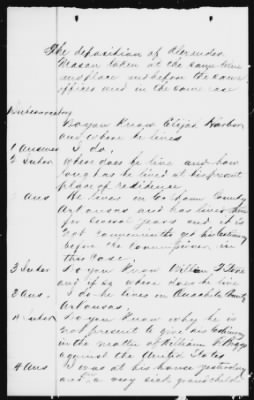 The deposition of Alexander
Mason taken at the same time
and place and before the same
officer and in the same case
Interrogatory
Do you Know Elijah
and where he lives
1 Answer I do.
2 Inter where does he live and how
long has he lived at his present
place of residence
Ans He lives in County
Arkansas and has lived
for several years and it is
not convenient to get his testimony
before the Commissioner in
this case.
3 Inter Do you Know William
and if so where does he live
3 Ans. I do he lives in Ouachita County
Arkansas.
4 Inter Do you Know why he is
not present to give his testimony
in the matter of William
against the United States
4 Ans I was at his house yesterday
and a very sick grandchild